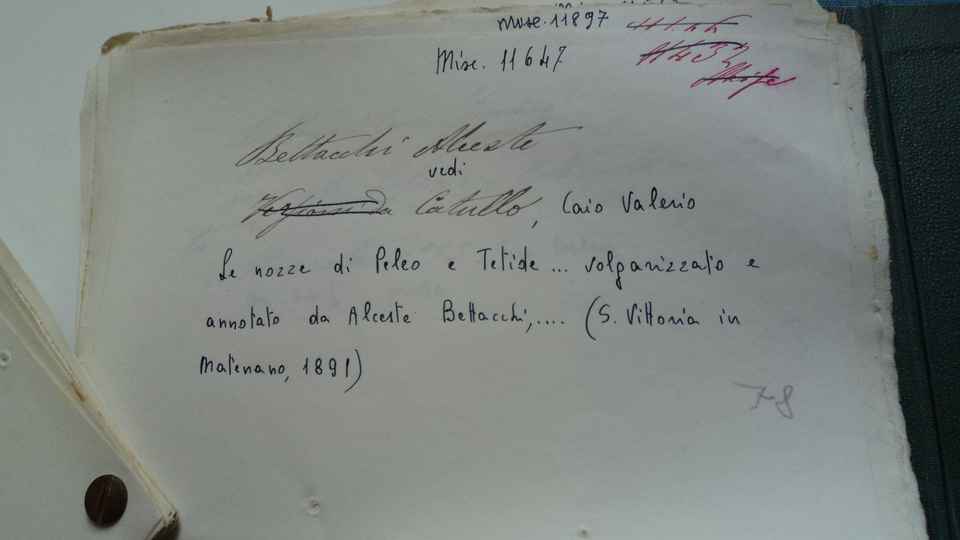 Misc. 11897
Misc. 11647
Bettacchi Alceste
vedi
Versioni da Catullo, Caio Valerio
Le nozze di Peleo e Tetide... volgarizzato e
annotato da Alceste Bettacchi,.... (S. Vittoria in
Matenano, 1891)
7-8